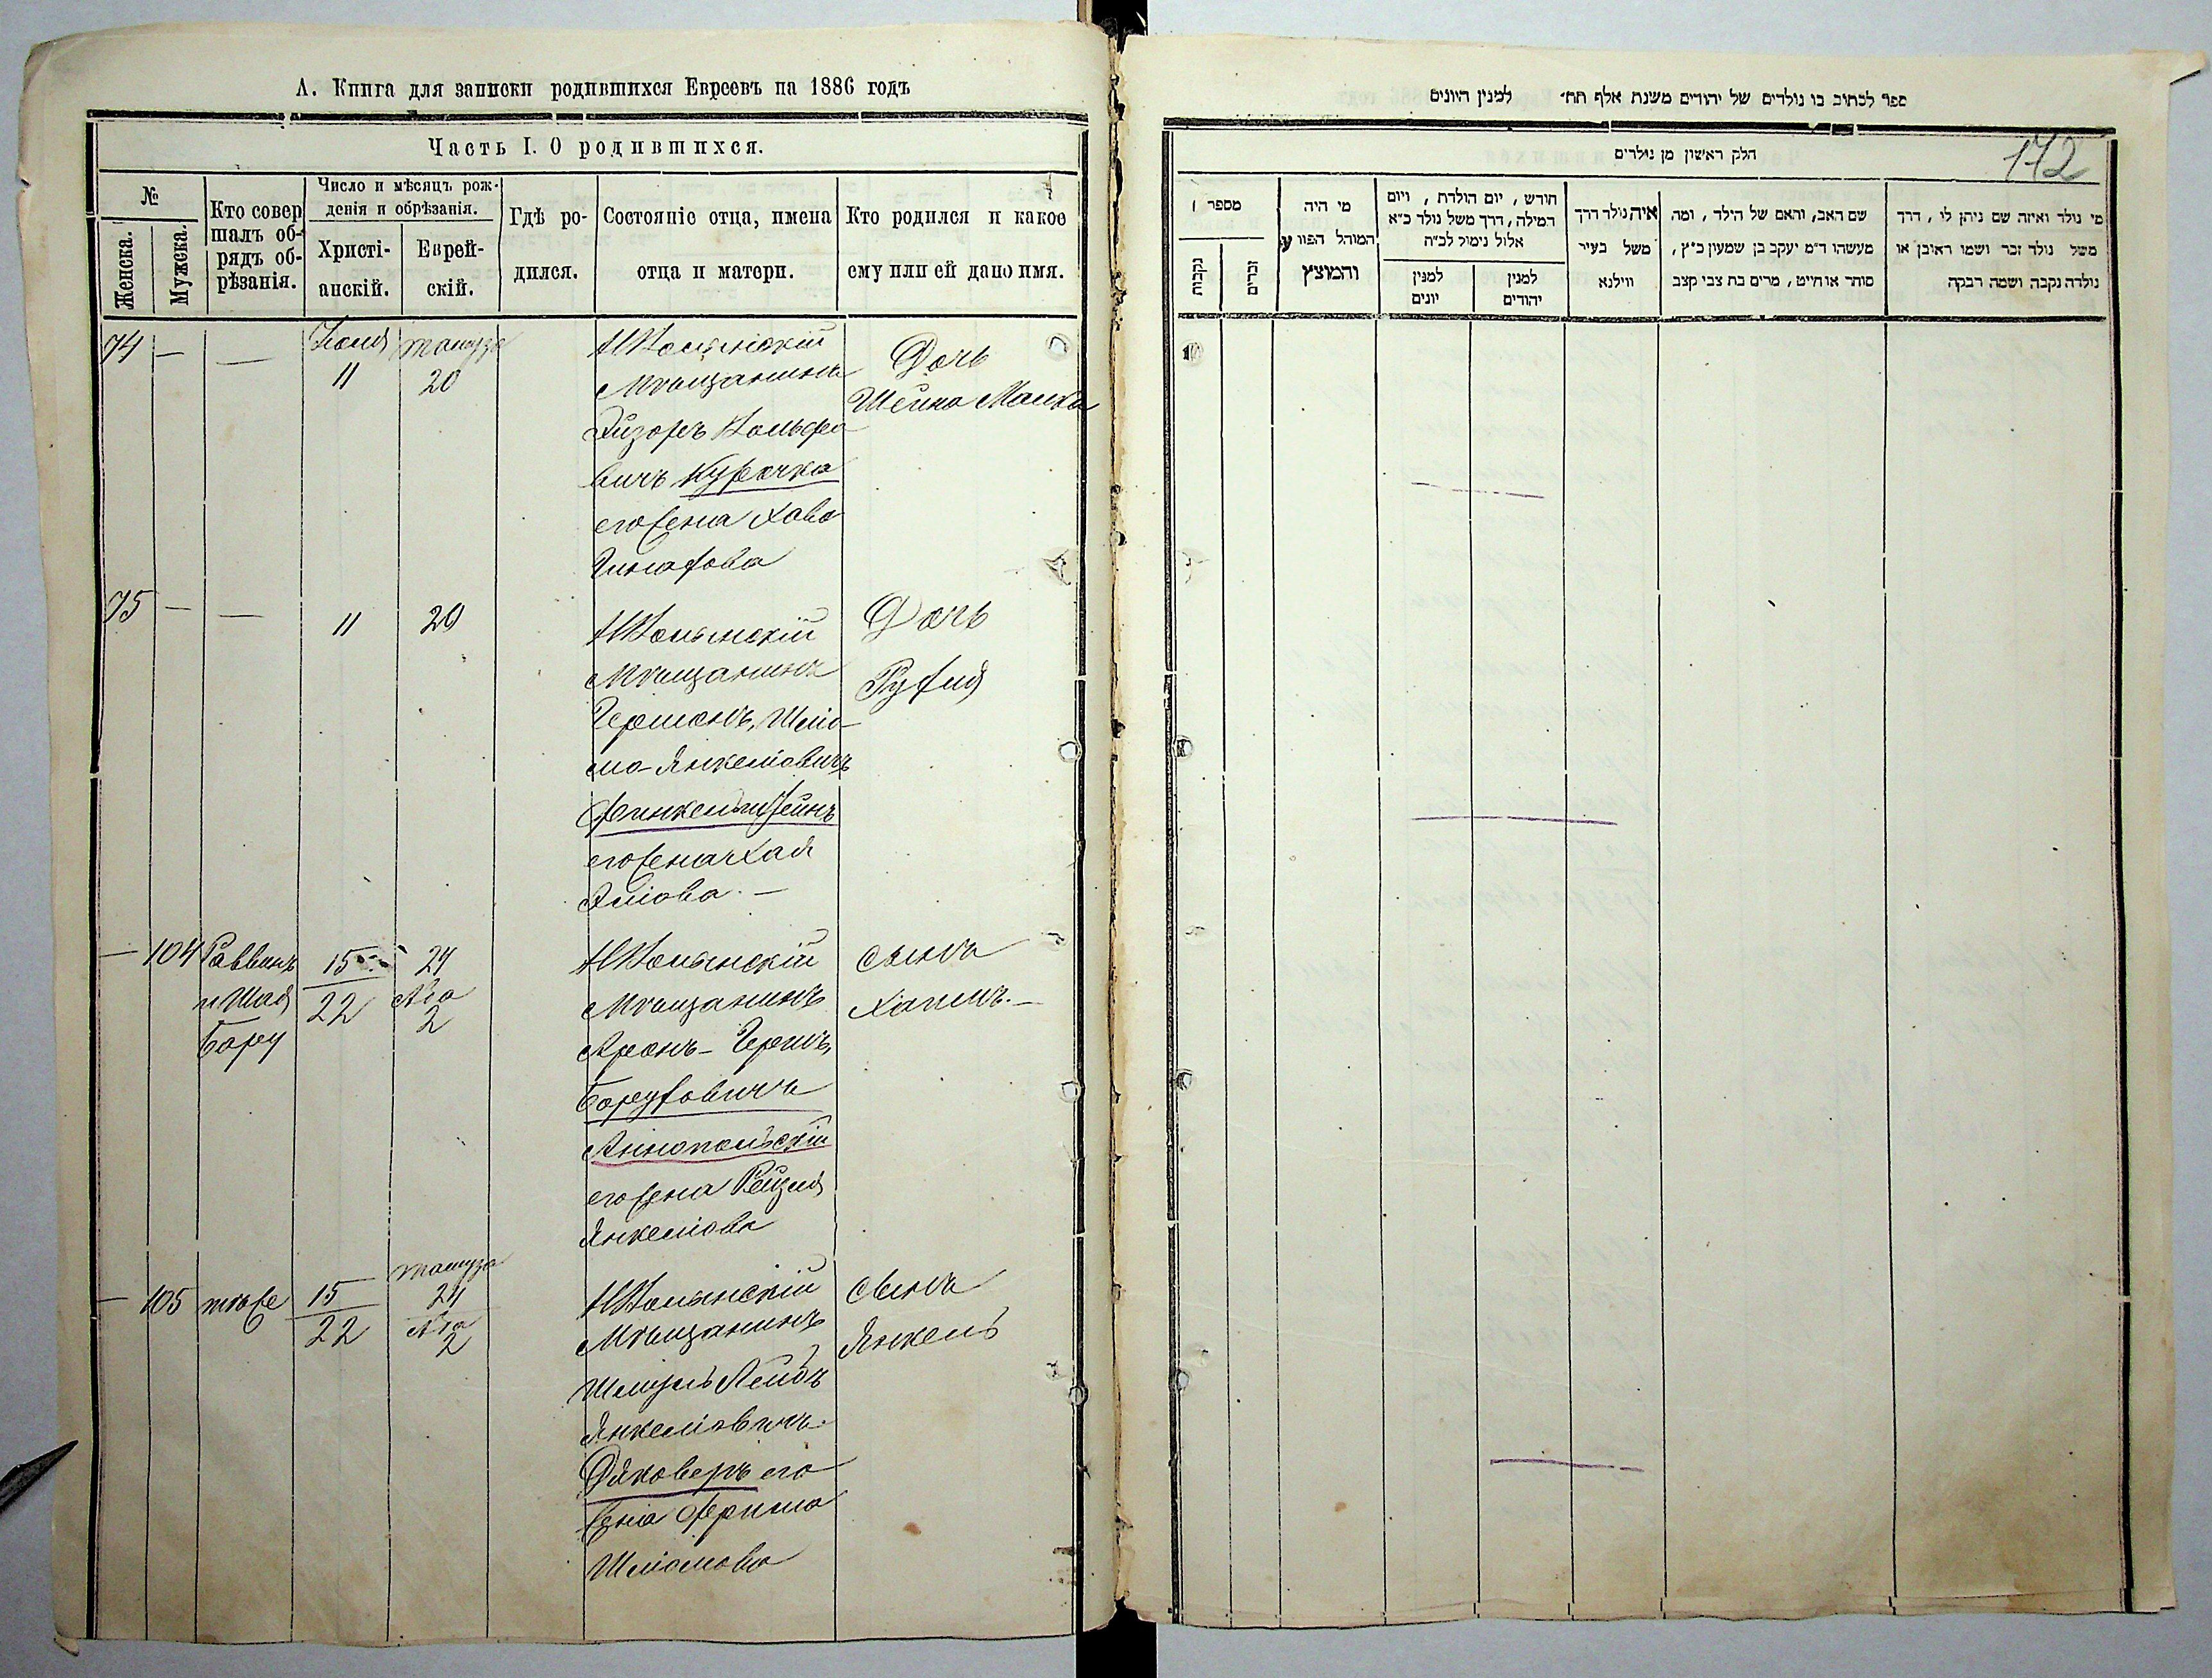 А. Книга для записки родившихся Евреевъ на 1886 годъ
Часть I. О родившихся.
№
Женска.
Мужска.
Кто совер
шалъ об-
рядъ об-
рѣзанія.
Число и мѣсяцъ рож-
денія и обрѣзанія.
Христі-
анскій.
Еврей-
скій.
Гдѣ ро-
дился.
Состояніе отца, имена
отца и матери.
Кто родился и какое
ему или ей дано имя.
74 — —
Іюля
11
Тамуза
20
Мѣщанинъ
Вольфо
вичъ Курочка
его жена Хава
Дочь
Шейна Малка
75 — —
11
20
Мѣщанинъ
Гершонъ, Шлio-
мо-Янкеліовичъ
Финкельштейнъ
его жена Хая
Эліова. —
Дочь
Рухля
— 104
Раввинъ
и Шая
Бару
15
22
24
Ава
2
Мѣщанинъ
Аронъ-Гершъ
Боруховичъ
Аннопольскій
его жена Рейзля
Янкеліова
сынъ
Хаимъ. —
— 105
тоже
15
22
Тамуза
24
Ава
2
Мѣщанинъ
Шмуль Лейбъ
Янкеліовичъ
Дяковеръ его
жена Фрима
Шліомова
сынъ
Янкель
ספר לכתוב בו נולדים של יהודים משנת אלף תת׳ למנין היונים
172
חלק ראשון מן נולדים
מספר
נקבות
זכרים
מי היה
המוהל הפורע
והמוצץ
חודש, יום הולדת, ויום
המילה, דרך משל נולד כ״א
אלול נימול לכ״ה
למנין
יונים
למנין
יהודים
איה נולד דרך
משל בעיר
ווילנא
שם האב, והאם של הילד, ומה
מעשהו ד״מ יעקב בן שמעון כ״ץ,
סוחר או חייט, מרים בת צבי קצב
מי נולד ואיזה שם ניתן לו, דרך
משל נולד זכר ושמו ראובן או
נולדה נקבה ושמה רבקה